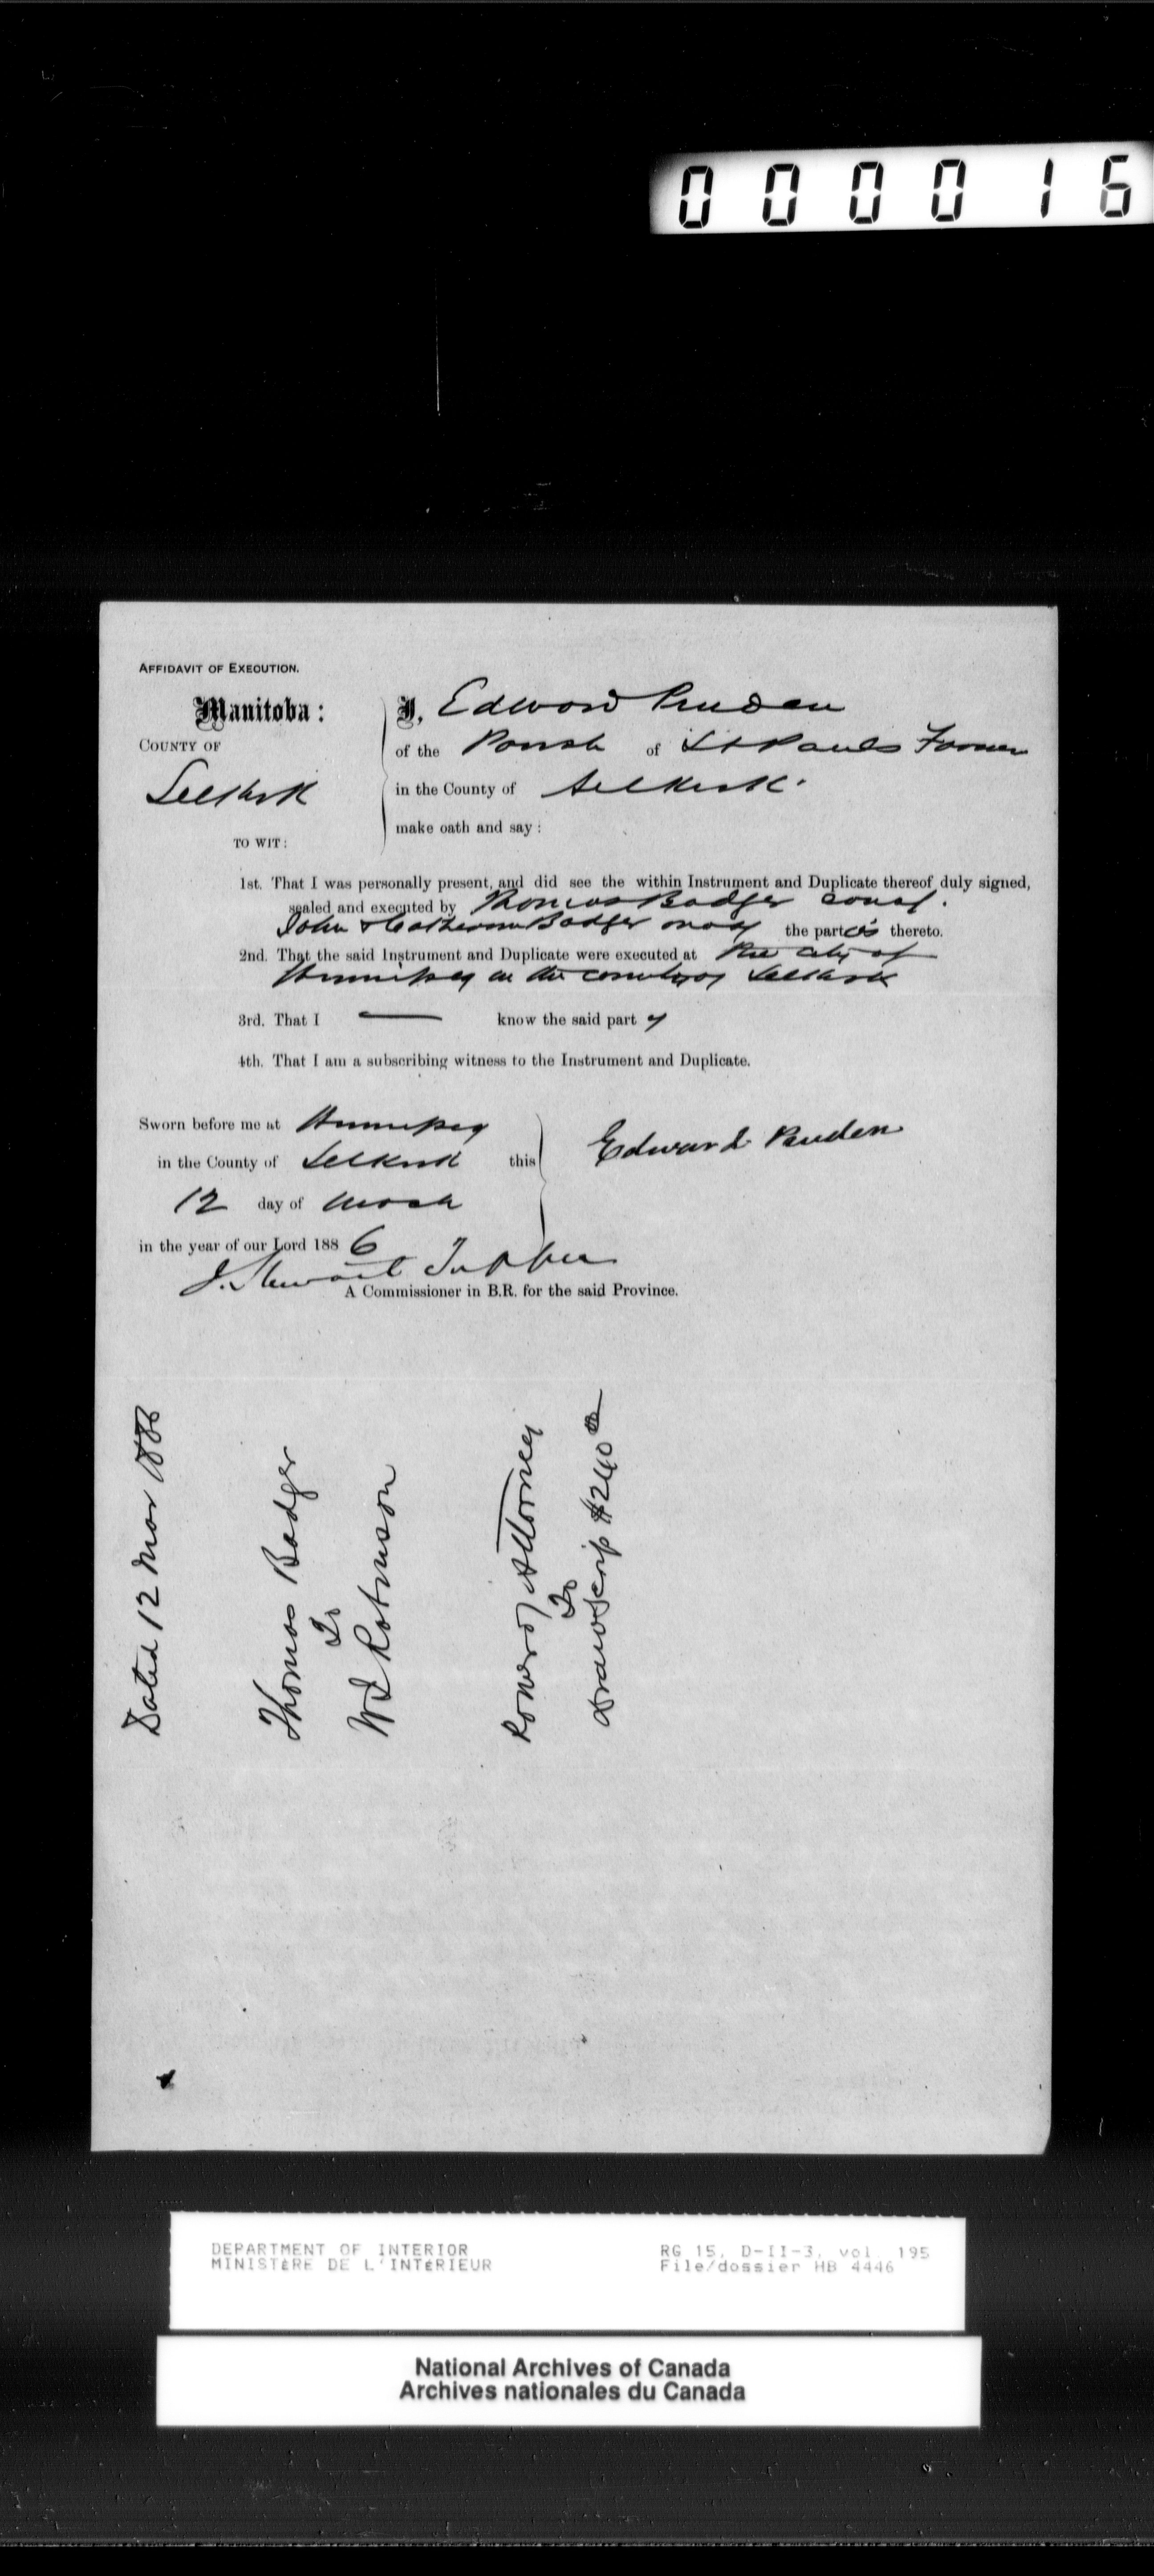 000016
AFFIDAVIT OF EXECUTION.
Manitoba:
COUNTY OF
Selkirk
TO WIT:
I, Edward Pruden
of the Parish of St Pauls Farmer
in the County of Selkirk.
make oath and say:
1st. That I was personally present, and did see the within Instrument and Duplicate thereof duly signed,
sealed and executed by Thomas Badger
John & Catherine Badger the parties thereto.
2nd. That the said Instrument and Duplicate were executed at the city of
Winnipeg in the county of Selkirk
3rd. That I — know the said part y
4th. That I am a subscribing witness to the Instrument and Duplicate.
Sworn before me at Winnipeg
in the County of Selkirk this
12 day of March
in the year of our Lord 188 6
Edward Pruden
J. Stewart Tupper
A Commissioner in B.R. for the said Province.
Dated 12 Mar 1886
Thomas Badger
To
W Robinson
Power of Attorney
To
Draw Scrip $240 00
DEPARTMENT OF INTERIOR
MINISTÈRE DE L'INTÉRIEUR
RG 15, D-II-3, vol. 195
File/dossier HB 4446
National Archives of Canada
Archives nationales du Canada